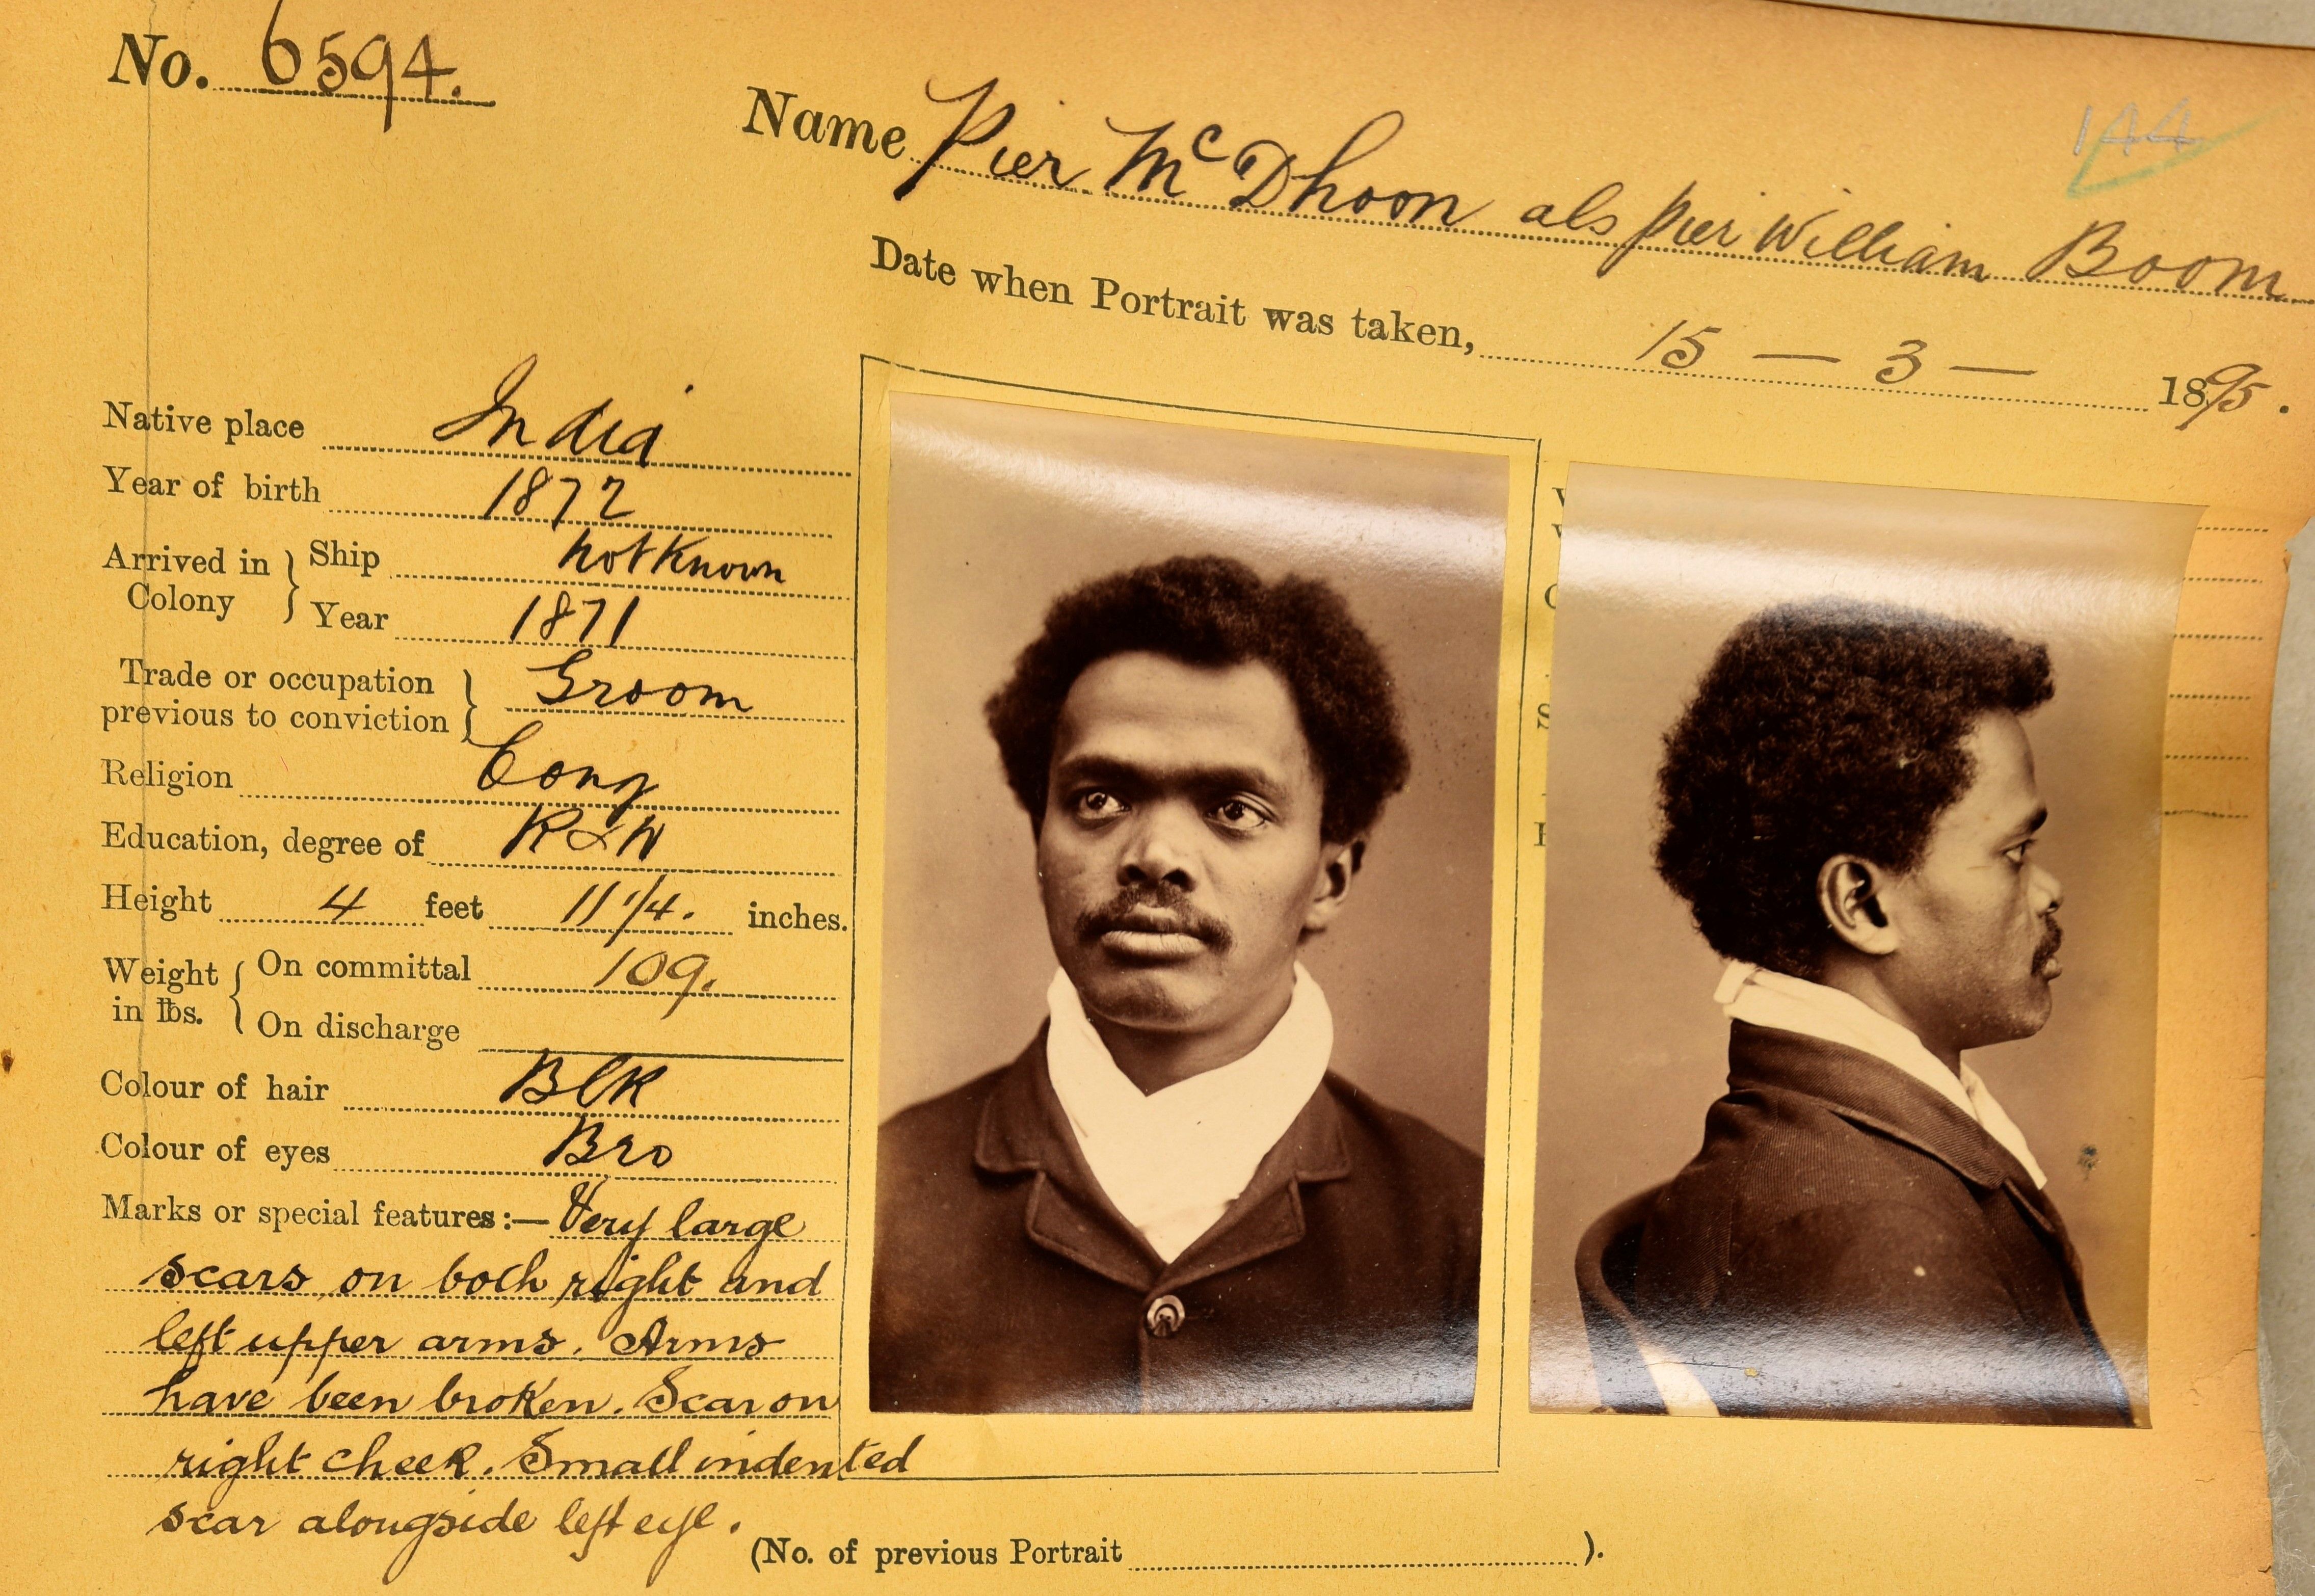 No. 6594.
144
Name Pier McDhoon als Pier William Boom
Date when Portrait was taken, 15 — 3 — 1895.
Native place India
Year of birth 1872
Arrived in Colony } Ship not Known
Year 1871
Trade or occupation previous to conviction } Groom
Religion Cong
Education, degree of R & W
Height 4 feet 11 1/4. inches.
Weight in lbs. { On committal 109.
On discharge
Colour of hair Blk
Colour of eyes Bro
Marks or special features:— Very large
scars on both right and
left upper arms. Arms
have been broken. Scar on
right cheek. Small indented
scar alongside left eye.
(No. of previous Portrait ).